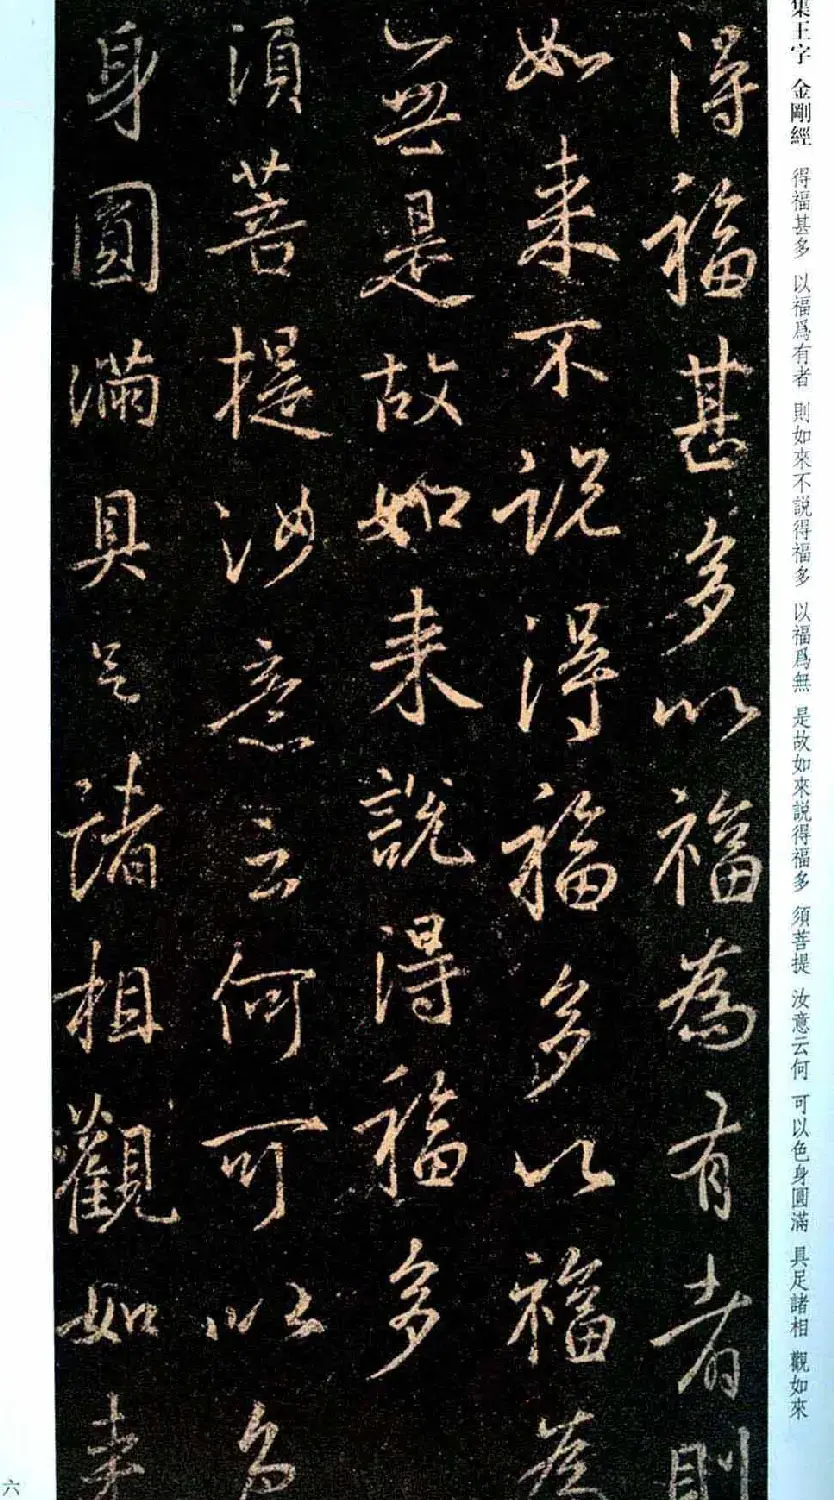 集王字 金剛經 得福甚多 以福爲有者 則如來不説得福多 以福爲無 是故如來説得福多 須菩提 汝意云何 可以色身圓滿 具足諸相 觀如來
得福甚多以福為有者則
如来不説得福多以福為
無是故如来説得福多
須菩提汝意云何可以色
身圓滿具足諸相觀如来
六